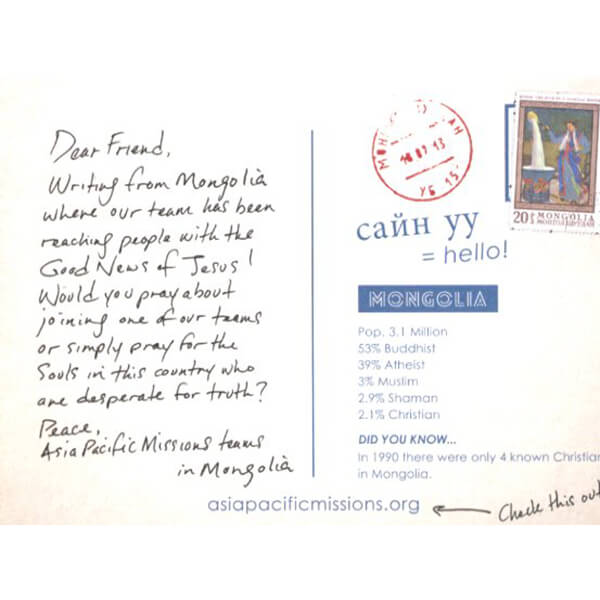 Dear Friend,
Writing from Mongolia
where our team has been
reaching people with the
Good News of Jesus!
Would you pray about
joining one of our teams
or simply pray for the
Souls in this country who
are desperate for truth?
Peace,
Asia Pacific Missions teams
in Mongolia
УБ 15
20 MONGOLIA
сайн уу
= hello!
MONGOLIA
Pop. 3.1 Million
53% Buddhist
39% Atheist
3% Muslim
2.9% Shaman
2.1% Christian
DID YOU KNOW...
In 1990 there were only 4 known Christian
in Mongolia.
asiapacificmissions.org
Check this out